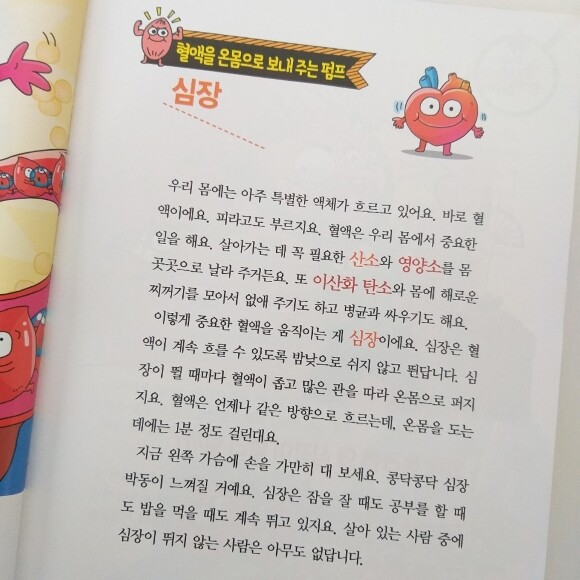 혈액을 온몸으로 보내 주는 펌프
심장
우리 몸에는 아주 특별한 액체가 흐르고 있어요. 바로 혈
액이에요. 피라고도 부르지요. 혈액은 우리 몸에서 중요한
일을 해요. 살아가는 데 꼭 필요한 산소와 영양소를 몸
곳곳으로 날라 주거든요. 또 이산화 탄소와 몸에 해로운
찌꺼기를 모아서 없애 주기도 하고 병균과 싸우기도 해요.
이렇게 중요한 혈액을 움직이는 게 심장이에요. 심장은 혈
액이 계속 흐를 수 있도록 밤낮으로 쉬지 않고 뛴답니다. 심
장이 뛸 때마다 혈액이 좁고 많은 관을 따라 온몸으로 퍼지
지요. 혈액은 언제나 같은 방향으로 흐르는데, 온몸을 도는
데에는 1분 정도 걸린대요.
지금 왼쪽 가슴에 손을 가만히 대 보세요. 콩닥콩닥 심장
박동이 느껴질 거예요. 심장은 잠을 잘 때도 공부를 할 때
도 밥을 먹을 때도 계속 뛰고 있지요. 살아 있는 사람 중에
심장이 뛰지 않는 사람은 아무도 없답니다.